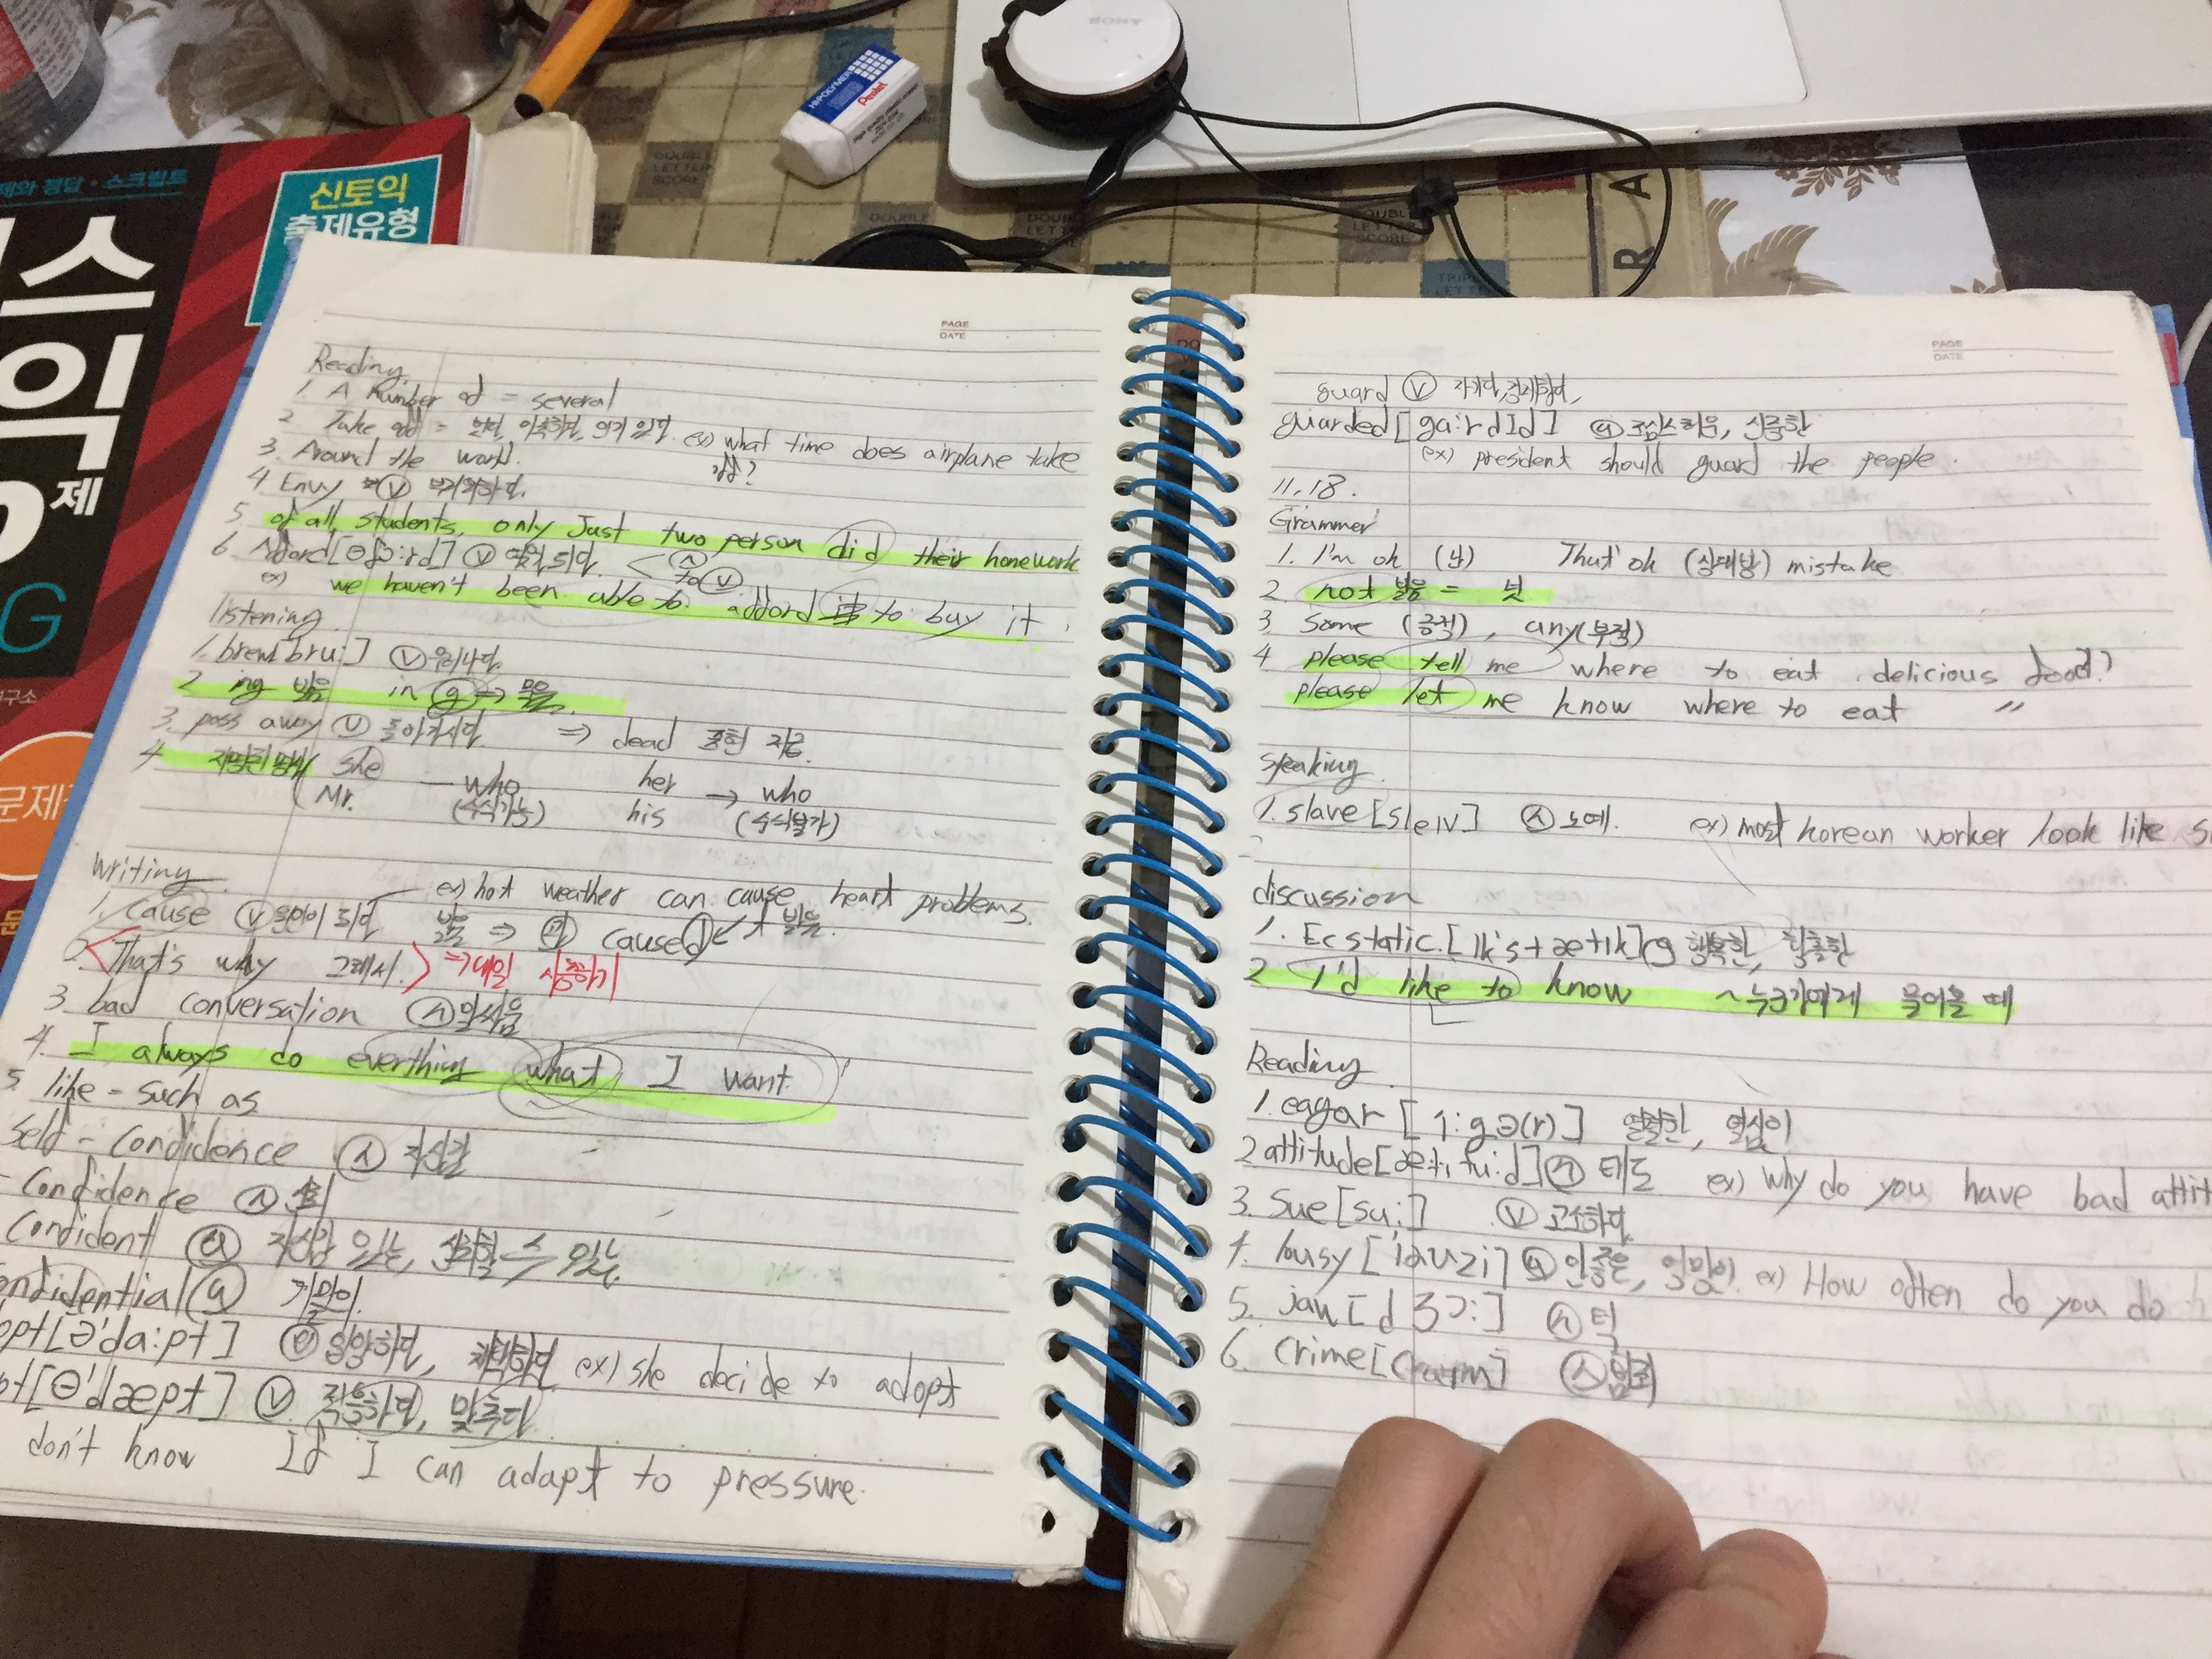 SONY
HI-POLYMER
Pentel
제와 정답 · 스크립트
신토익
출제유형
스
익
제
G
구소
문제
DOUBLE LETTER SCORE
DOUBLE LETTER SCORE
DOUBLE LETTER SCORE
DOUBLE LETTER SCORE
R A
PAGE
DATE
Reading
1. A number of = several
2 Take off = ex) what time does airplane take
off?
3. Around the world.
4 Envy ⓥ 부러워하다.
5 of all students, only Just two person did their homework
6 Afford[əfɔ:rd] ⓥ
to ⓥ
ex) we haven't been able to afford to buy it.
listening
1. brew[bru:] ⓥ 우려나다
2 ing 발음 in ⓖ ⇒ 묵음
3. pass away ⓥ 돌아가시다. ⇒ dead
4 she — who her → who
Mr. (수식가능) his (수식불가)
Writing
ex) hot weather can cause heart problems.
1. cause ⓥ 원인이 되다 발음 ⇒ caused 발음.
2. <That's why 그래서.> ⇒ 내일 시험하기
3 bad conversation ㅅ 말싸움
4. I always do everthing what I want.
5 like = such as
Self - confidence ㅅ 자신감
- confidence ㅅ 신뢰
confident ⓐ 자신감 있는, 신뢰할 수 있는
onfidential ⓐ
opt[ə'da:pt] ⓥ 입양하다, 채택하다 ex) she decide to adopt
pt[ə'dæpt] ⓥ 적응하다, 맞추다
don't know If I can adapt to pressure.
PAGE
DATE
guard ⓥ
guarded[ga:rdId] ⓐ 조심스러운, 신중한
ex) president should guard the people.
11.18.
Grammer
1. I'm ok (난) That' ok (상대방) mistake
2. not 발음 = 낫
3 Some (긍정), any(부정)
4 please tell me where to eat delicious food?
please let me know where to eat 〃
speaking
1. slave[sleIv] ㅅ 노예. ex) most korean worker look like s
discussion
1. Ecstatic.[Ik'stætIk] ⓐ 행복한, 황홀한
2 I'd like to know ~누군가에게 물어볼 때
Reading
1. eagar [i:gə(r)] 열렬한, 열심인
2 attitude[ætɪtu:d] ㅅ 태도 ex) Why do you have bad attit
3. Sue[su:] ⓥ 고소하다
4. lousy['lauzi] ⓐ 안좋은, 엉망인 ex) How often do you do
5. jaw[dʒɔ:] ㅅ 턱
6. Crime[craim] ㅅ 범죄